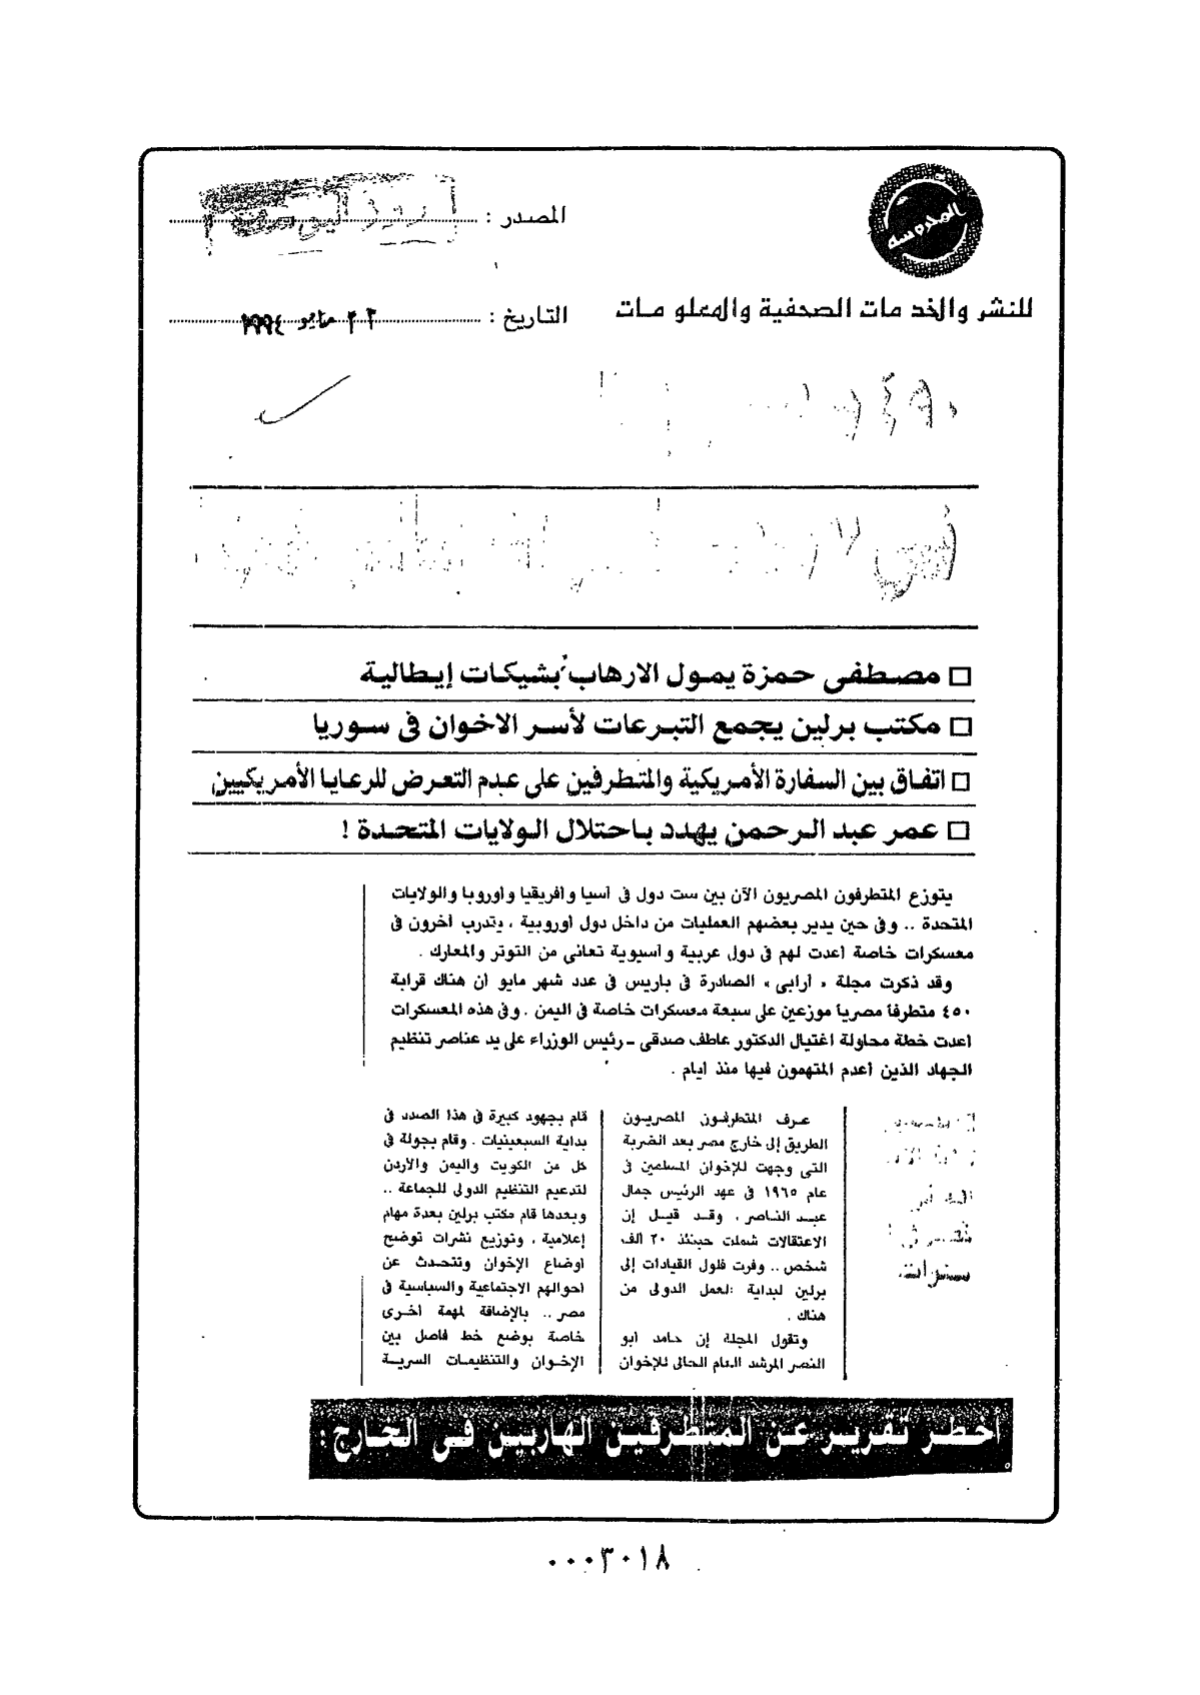 المحروسة
المصدر :
للنشر والخدمات الصحفية والمعلومات
التاريخ : ٢٣ مايو ١٩٩٤
□ مصطفى حمزة يمول الارهاب بشيكات إيطالية
□ مكتب برلين يجمع التبرعات لأسر الاخوان فى سوريا
□ اتفاق بين السفارة الأمريكية والمتطرفين على عدم التعرض للرعايا الأمريكيين
□ عمر عبد الرحمن يهدد باحتلال الولايات المتحدة !
يتوزع المتطرفون المصريون الآن بين ست دول فى آسيا وأفريقيا وأوروبا والولايات
المتحدة .. وفى حين يدير بعضهم العمليات من داخل دول أوروبية ، يتدرب آخرون فى
معسكرات خاصة أعدت لهم فى دول عربية وآسيوية تعانى من التوتر والمعارك .
وقد ذكرت مجلة « أرابى » الصادرة فى باريس فى عدد شهر مايو أن هناك قرابة
٤٥٠ متطرفا مصريا موزعين على سبعة معسكرات خاصة فى اليمن . وفى هذه المعسكرات
أعدت خطة محاولة اغتيال الدكتور عاطف صدقى - رئيس الوزراء على يد عناصر تنظيم
الجهاد الذين أعدم المتهمون فيها منذ أيام .
عرف المتطرفون المصريون
الطريق إلى خارج مصر بعد الضربة
التى وجهت للإخوان المسلمين فى
عام ١٩٦٥ فى عهد الرئيس جمال
عبد الناصر ، وقد قيل إن
الاعتقالات شملت حينئذ ٢٠ ألف
شخص .. وفرت فلول القيادات إلى
برلين لبداية العمل الدولى من
هناك .
وتقول المجلة إن حامد أبو
النصر المرشد العام الحالى للإخوان
قام بجهود كبيرة فى هذا الصدد فى
بداية السبعينيات . وقام بجولة فى
كل من الكويت واليمن والأردن
لتدعيم التنظيم الدولى للجماعة ..
وبعدها قام مكتب برلين بعدة مهام
إعلامية ، وتوزيع نشرات توضح
أوضاع الإخوان وتتحدث عن
أحوالهم الاجتماعية والسياسية فى
مصر .. بالإضافة لمهمة أخرى
خاصة بوضع خط فاصل بين
الإخوان والتنظيمات السرية
أخطر تقرير عن المتطرفين الهاربين فى الخارج :
٠٠٠٣٠١٨